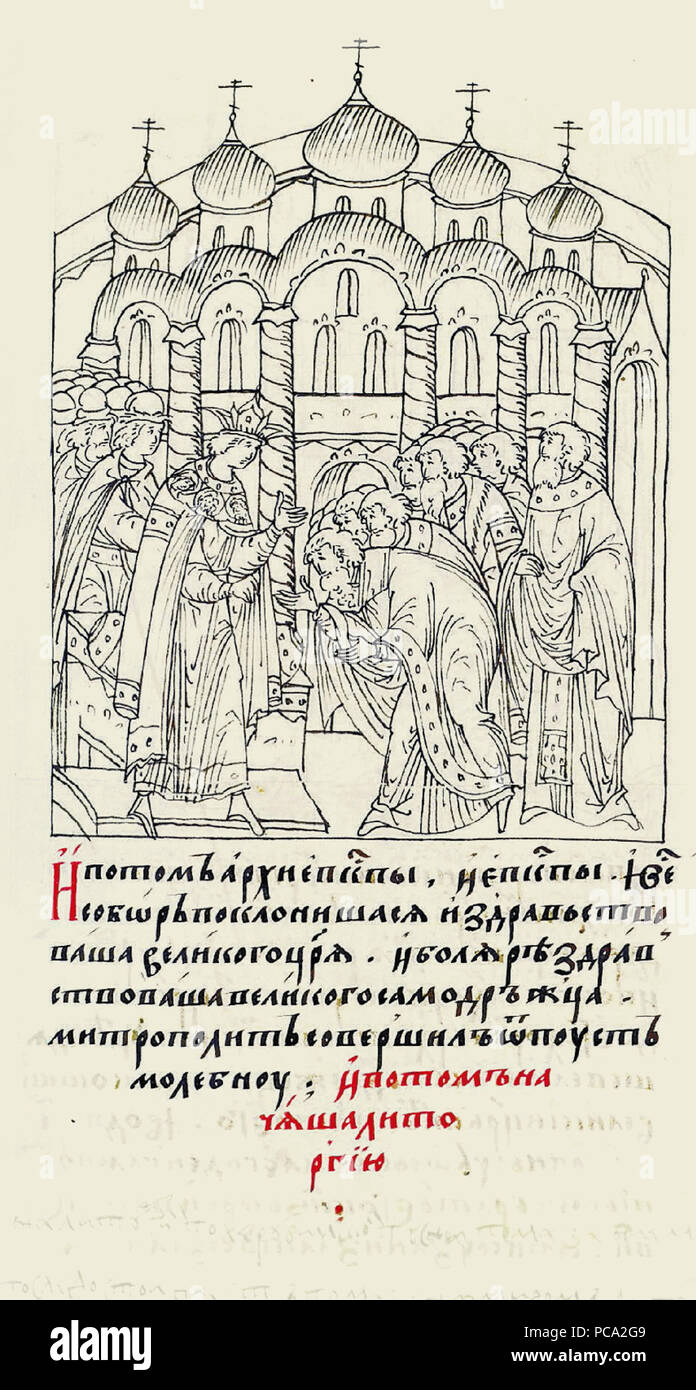 И҆потомъ а҆рхиепⷭ҇кпы, и҆ епⷭ҇кпы. и҆ вⷭ҇е
мсоборѣ поклонишася и҆ здравьство
ваша великого цр҃я. и҆ боляре здрав
ствоваша великого самодръжца.
митрополитъ совершилъ ѿпоустъ
молебноу; и҆потомъ на
чаша лито
ргїю
a
alamy
a
a
alamy
Image ID: PCA2G9
www.alamy.com